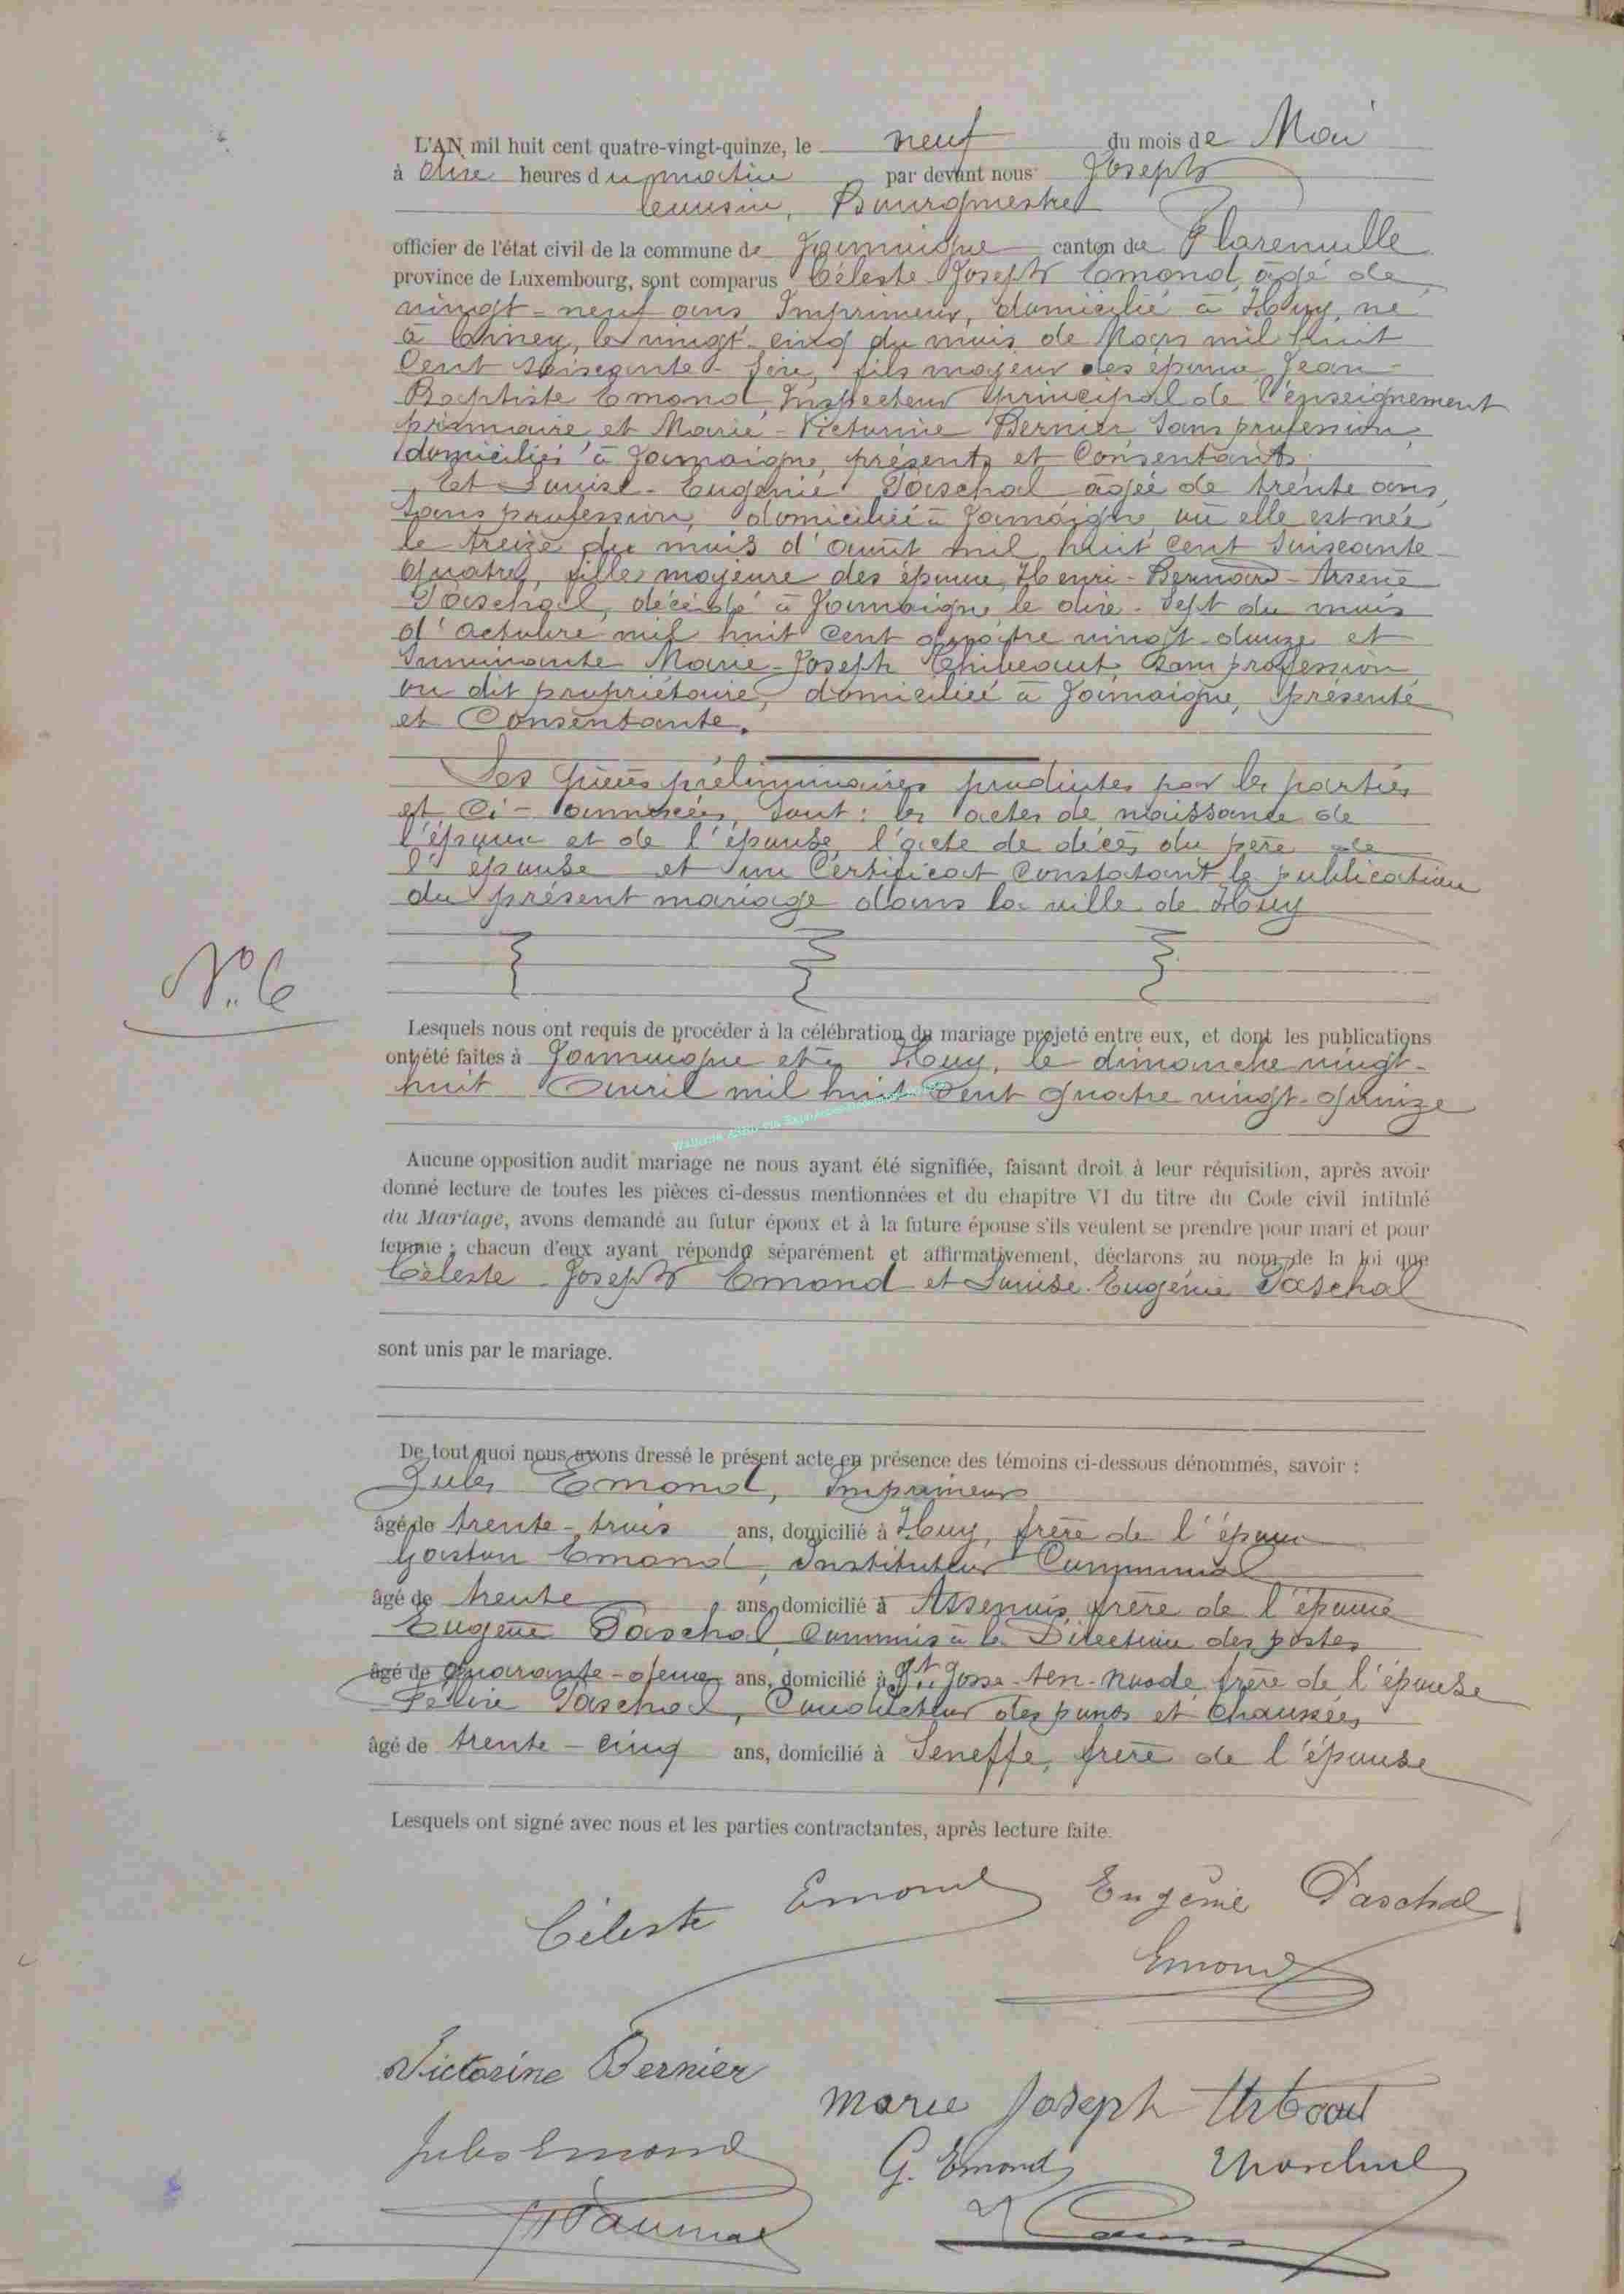 L'AN mil huit cent quatre-vingt-quinze, le neuf du mois de Mai
à onze heures du matin par devant nous Joseph
Bourgmestre
officier de l'état civil de la commune de Jamoigne canton de Florenville
province de Luxembourg, sont comparus Céleste Joseph Emond, âgé de
vingt-neuf ans Imprimeur, domicilié à Huy, né
à Chiney, le vingt cinq du mois de Mars mil huit
Cent soixante-six, fils majeur des époux Jean-
Baptiste Emond, Inspecteur principal de l'enseignement
primaire et Marie-Victorine Bernier, sans profession,
domiciliés à Jamoigne, présents et Consentants,
Et Louise-Eugénie Paschal âgée de trente ans,
sans profession, domiciliée à Jamoigne, où elle est née
le treize du mois d'août mil huit Cent Soixante
Quatre, fille majeure des époux Henri-Bernard-Arsène
Paschal, décédé à Jamoigne, le dix-sept du mois
d'octobre mil huit Cent quatre vingt-douze et
Survivante Marie-Joseph Thibeaut, sans profession
ou dit propriétaire, domiciliée à Jamoigne, présente
et Consentante.
Les pièces préliminaires produites par les parties
et Ci-annexées, sont : les actes de naissance de
l'époux et de l'épouse, l'acte de décès du père de
l'épouse et un Certificat Constatant la publication
du présent mariage dans la ville de Huy
N° 6
Lesquels nous ont requis de procéder à la célébration du mariage projeté entre eux, et dont les publications
ont été faites à Jamoigne et à Huy, le dimanche vingt-
huit Avril mil huit Cent quatre vingt-quinze
Aucune opposition audit mariage ne nous ayant été signifiée, faisant droit à leur réquisition, après avoir
donné lecture de toutes les pièces ci-dessus mentionnées et du chapitre VI du titre du Code civil intitulé
du Mariage, avons demandé au futur époux et à la future épouse s'ils veulent se prendre pour mari et pour
femme ; chacun d'eux ayant répondu séparément et affirmativement, déclarons au nom de la loi que
Céleste-Joseph Emond et Louise-Eugénie Paschal
sont unis par le mariage.
De tout quoi nous avons dressé le présent acte en présence des témoins ci-dessous dénommés, savoir :
Jules Emond, Imprimeur
âgé de trente-trois ans, domicilié à Huy, frère de l'époux
Gaston Emond, Instituteur Communal
âgé de trente ans, domicilié à Assenois, frère de l'époux
Eugène Paschal, Commis à la Direction des postes
âgé de Quarante-deux ans, domicilié à St. Josse-ten-noode, frère de l'épouse
Paschal, Conducteur des ponts et Chaussées
âgé de trente-cinq ans, domicilié à Seneffe, frère de l'épouse
Lesquels ont signé avec nous et les parties contractantes, après lecture faite.
Céleste Emond Eugénie Paschal
Emond
Victorine Bernier
Marie Joseph
Jules Emond G. Emond